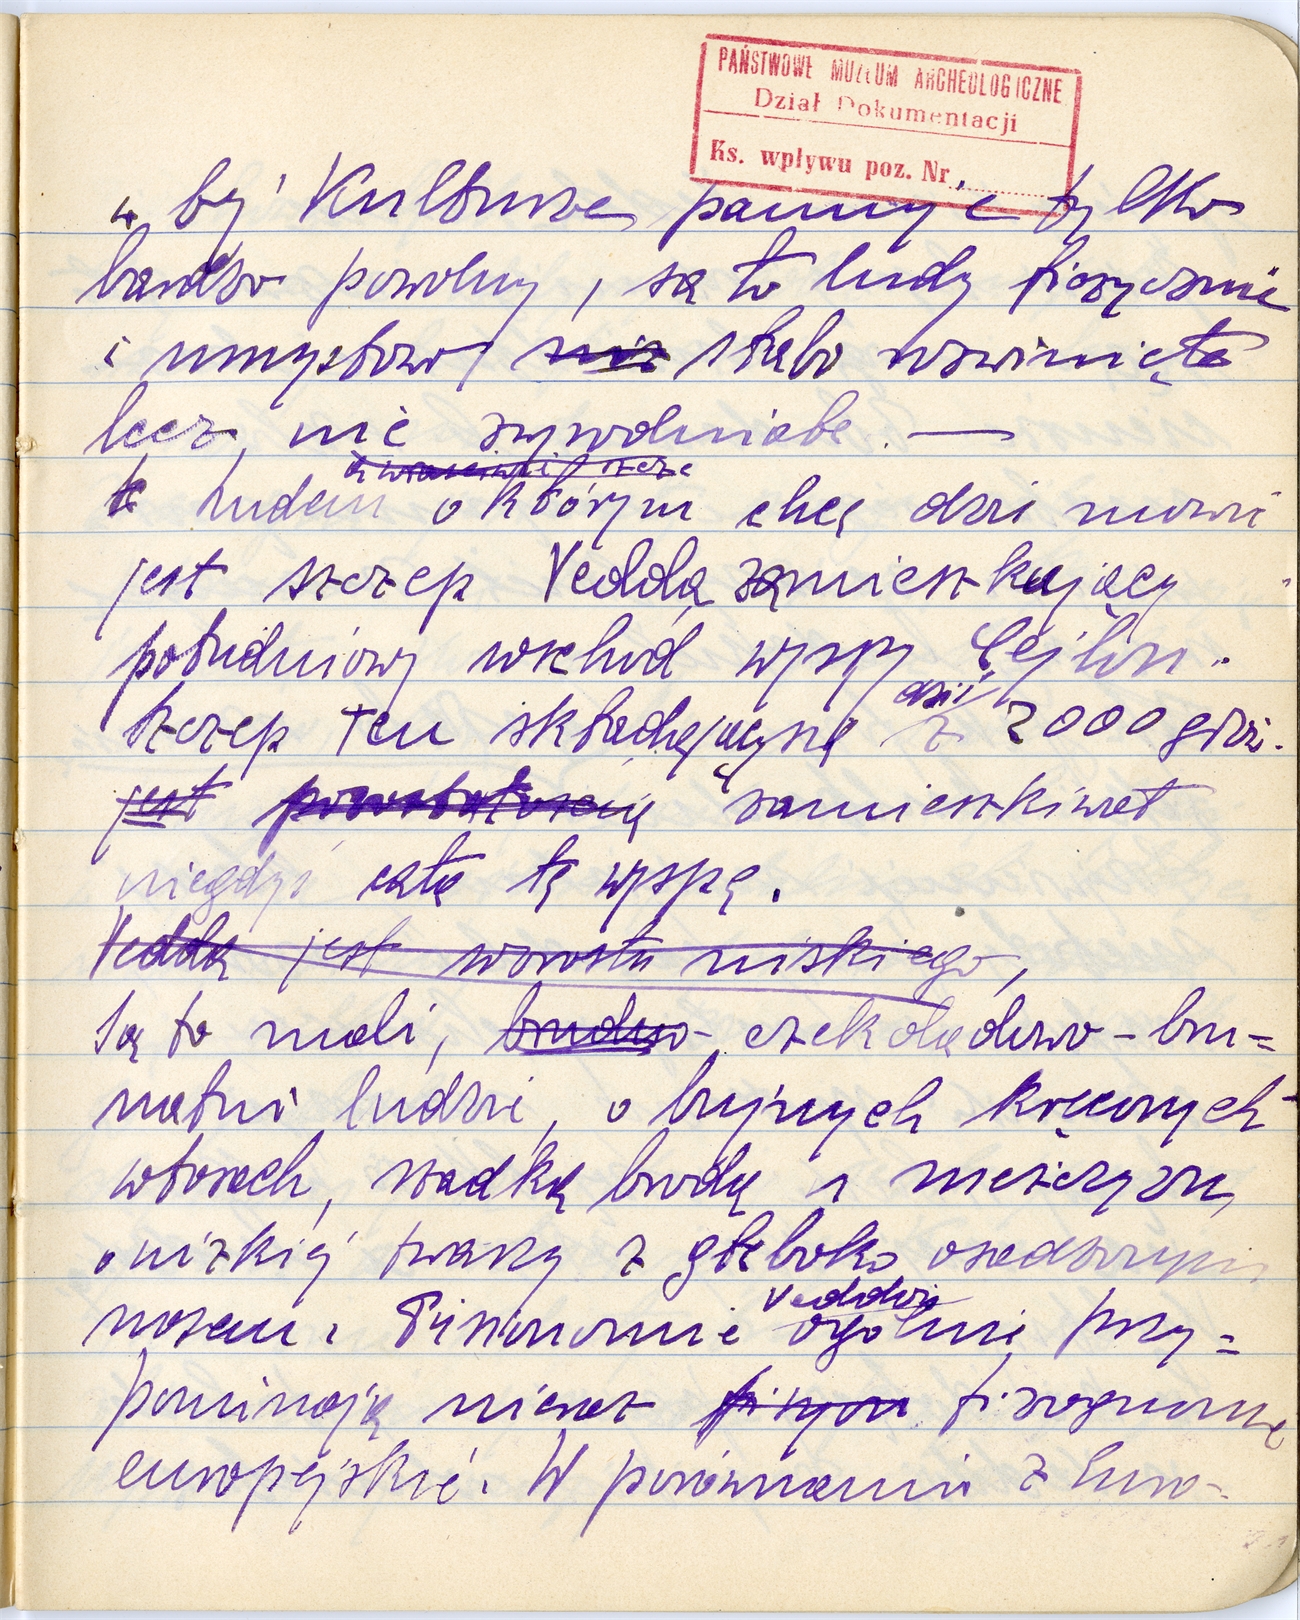 PAŃSTWOWE MUZEUM ARCHEOLOGICZNE
Dział Dokumentacji
Ks. wpływu poz. Nr
być tylko
bardzo powolny, są to ludy fizycznie
i umysłowo nie słabo rozwinięte
lecz nie zwyrodniałe. —
Ludem o którym chcę dziś mówić
jest szczep Vedda zamieszkujący
południowy wschód wyspy Cejlon.
dziś
szczep ten składający się z 2000 głów.
jest pozostałością zamieszkiwał
niegdyś całą tę wyspę.
Vedda jest wzrostu niskiego,
Są to mali, czekoladowo-bru=
natni ludzie, o bujnych kręconych
włosach, rzadką brodą u mężczyzn,
o nizkiej twarzy z głęboko osadzonym
Veddów
nosem. ogólnie przy=
pominają nieraz fizognomie
europejskie. W porównaniu z Euro-